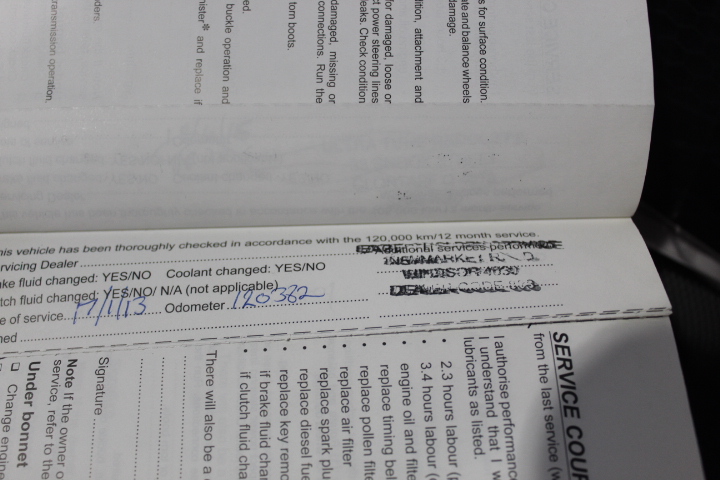 s for surface condition.
ate and balance wheels
damage.
dition, attachment and
for damaged, loose or
ct power steering lines
leaks. Check condition
damaged, missing or
connections. Run the
torn boots.
buckle operation and
ed.
nister* and replace if
ders.
transmission operation.
his vehicle has been thoroughly checked in accordance with the 120,000 km/12 month service.
rvicing Dealer
Additional services perform
ake fluid changed: YES/NO Coolant changed: YES/NO
NEWMARKET R
tch fluid changed: YES/NO/ N/A (not applicable)
WINDSOR 4030
e of service 17/1/13 Odometer 120382
DEALER CODE
ned
SERVICE COU
from the last service (w
I authorise performance
I understand that I w
lubricants as listed.
• 2.3 hours labour (p
• 3.4 hours labour (
• engine oil and filte
• replace timing bel
• replace pollen filte
• replace air filter
• replace spark plu
• replace diesel fue
replace key remo
• if brake fluid chan
• if clutch fluid chan
There will also be a
Signature
Note If the owner o
service, refer to the
Under bonnet
Change engine